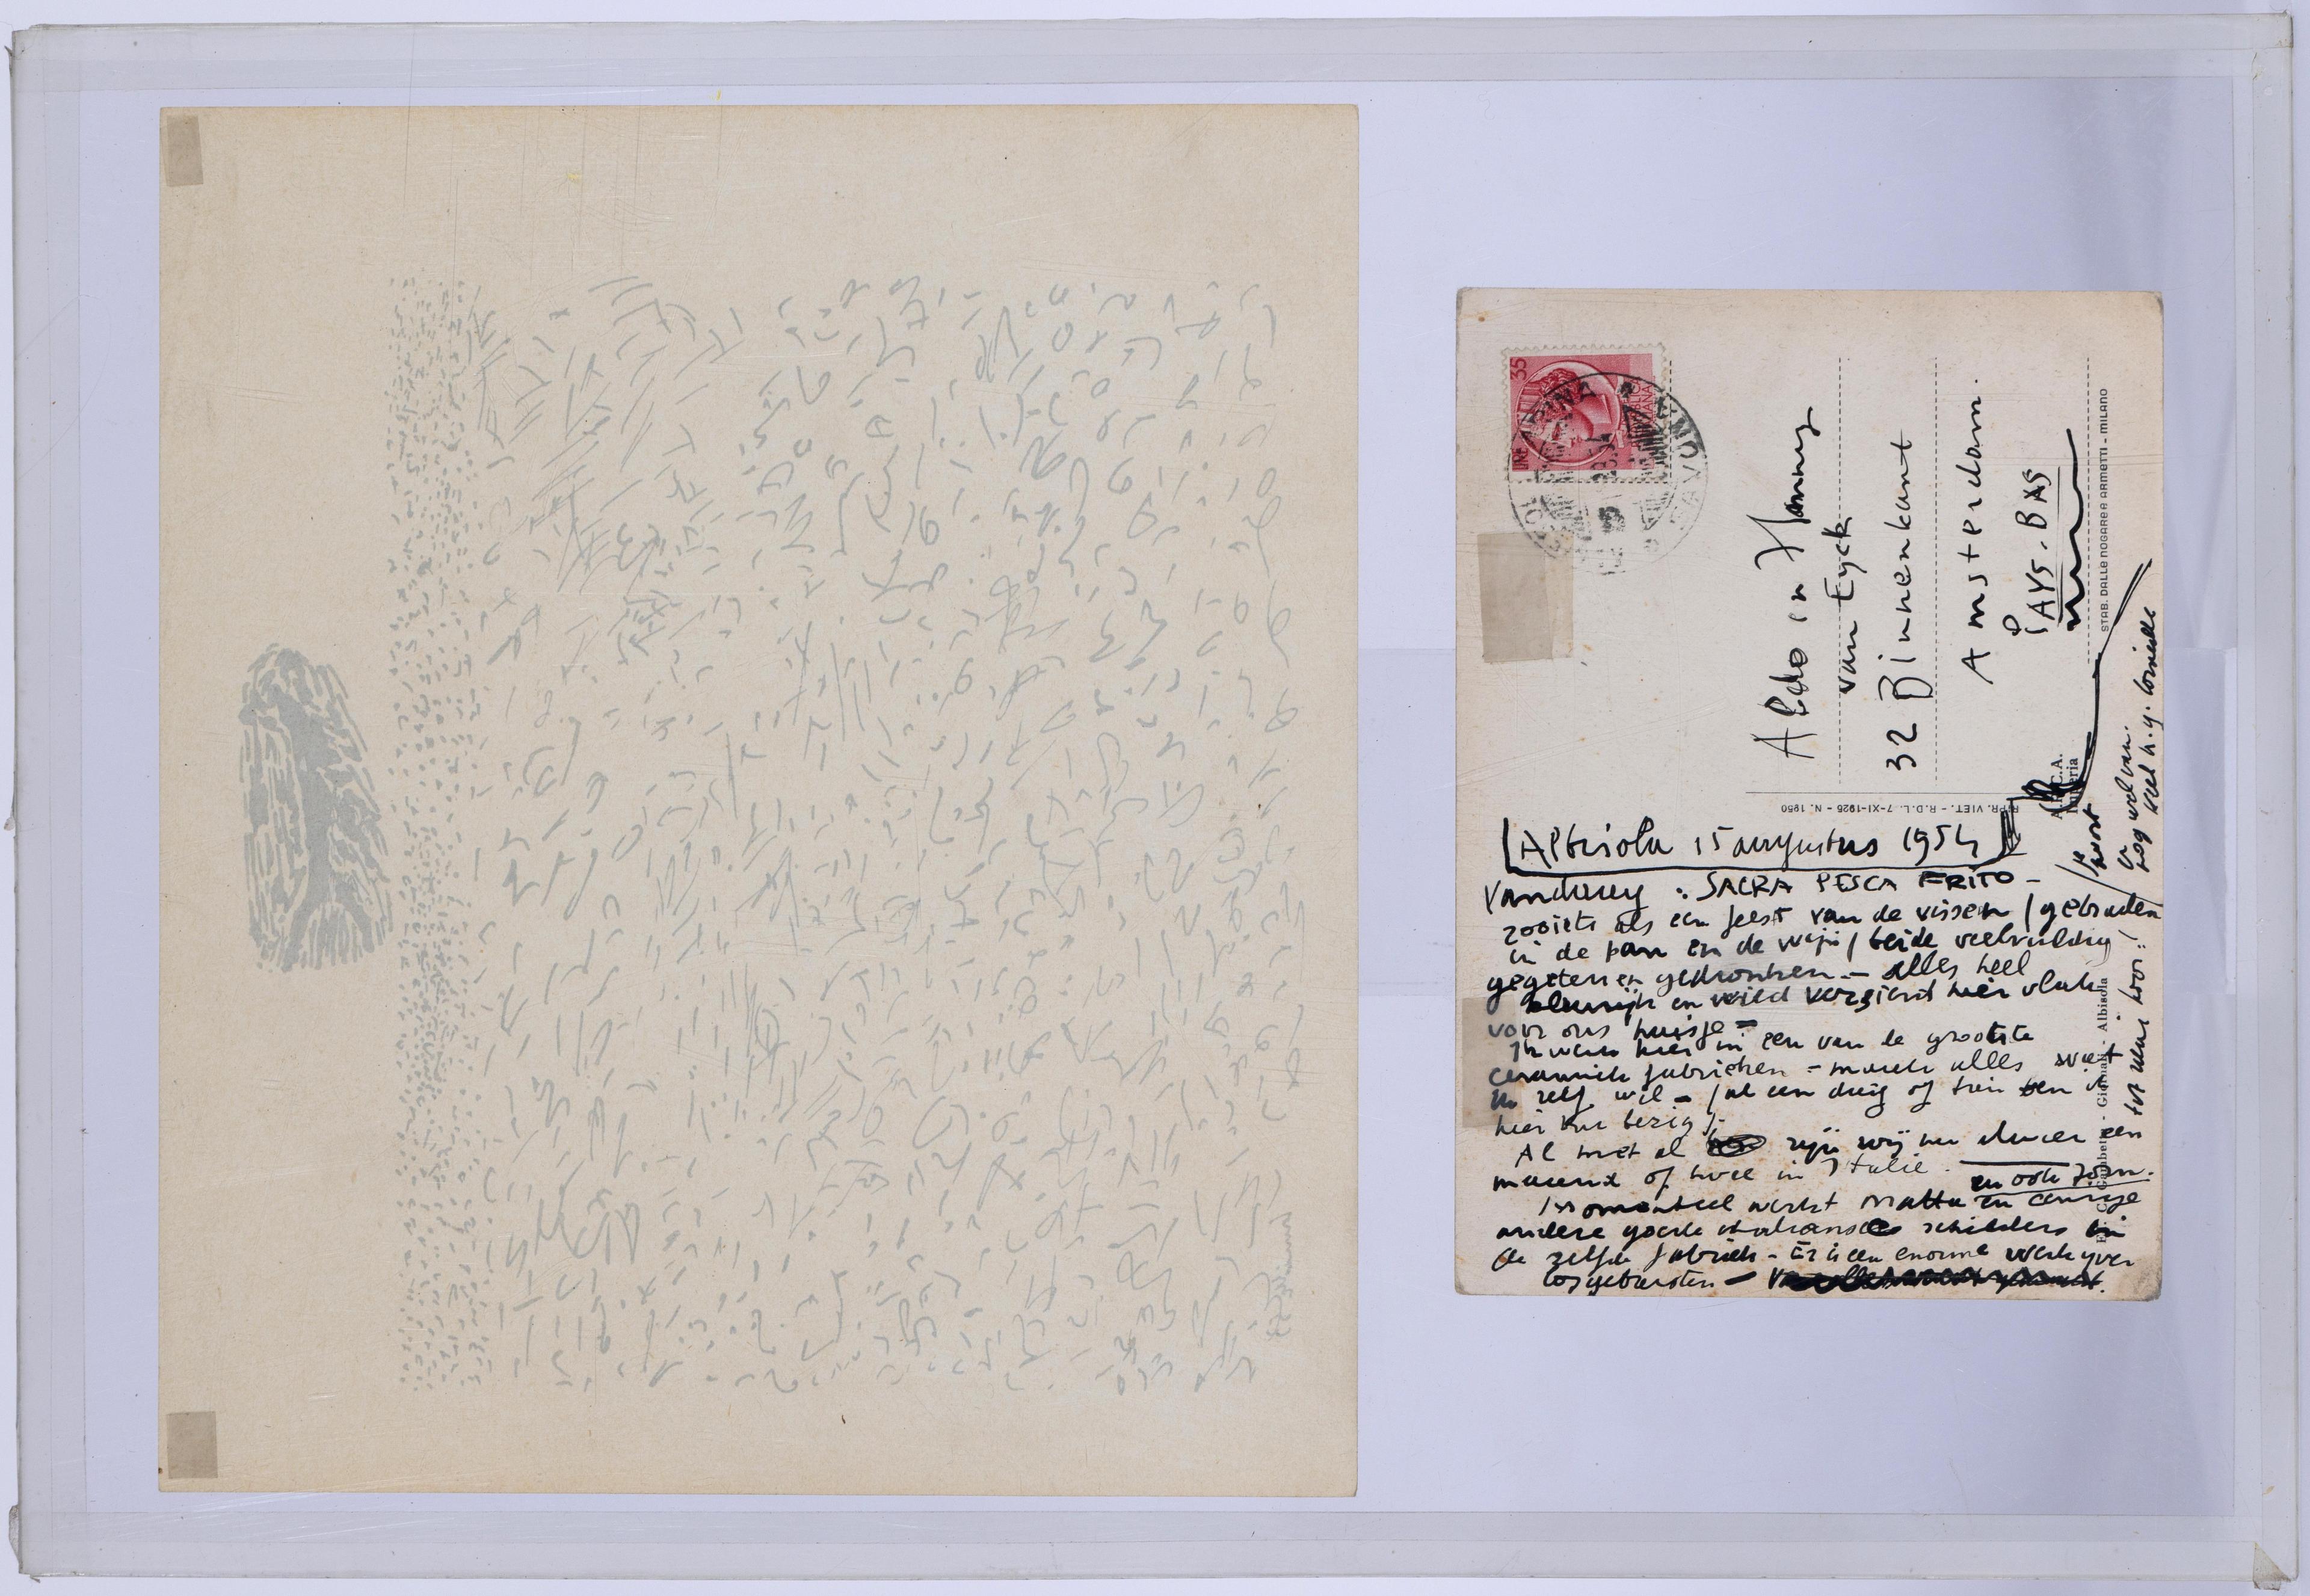 LIRE 35
SAVONA
Aldo en Hanny
van Eyck
32 Binnenkant
Amsterdam.
PAYS-BAS
STAB. DALLE NOGARE E ARMETTI - MILANO
RIPR. VIET. - R.D.L. 7-XI-1925 - N. 1950
Albisola 15 augustus 1954
Vandaag : SACRA PESCA FRITO -
zoiets als een feest van de vissen / gebraden
in de pan en de wijn / beide veelvuldig
gegeten en gedronken - alles heel
en wild versierd hier vlak
voor ons huisje -
Ik werk hier in een van de grootste
ceramiek fabrieken - maak alles wat
ik zelf wil - / al een dag of tien ben ik
hier nu bezig /.
Al met al zijn wij nu alweer een
maand of twee in Italie.
en ook Jorn.
Momenteel werkt Matta en eenige
andere goede italiaansche schilders in
de zelfde fabriek - Er is een enorme werkyver
losgebarsten -
Albisola
tot weer hoor !!
Corneille